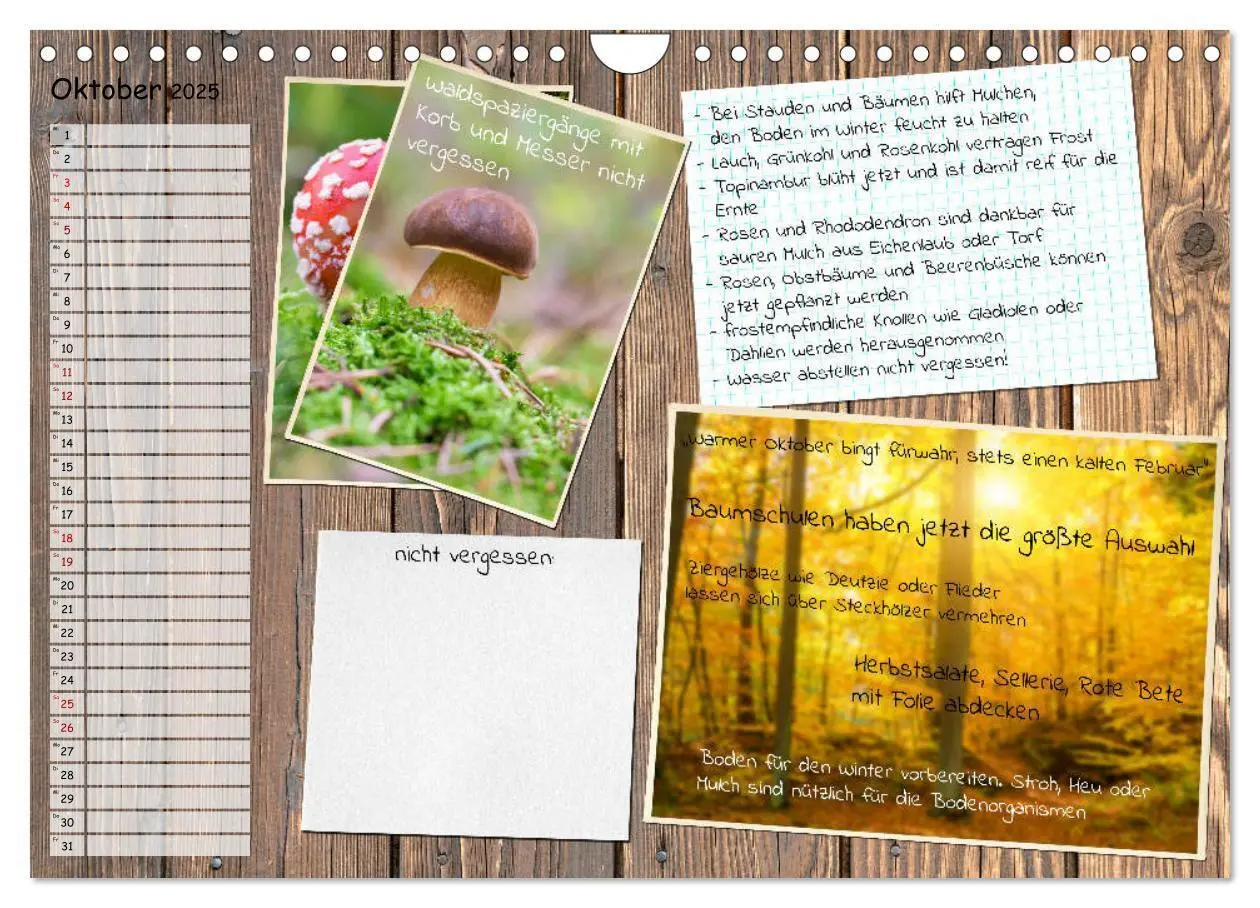 Oktober 2025
1
2
3
4
5
6
7
8
9
10
11
12
13
14
15
16
17
18
19
20
21
22
23
24
25
26
27
28
29
30
31
Waldspaziergänge mit
Korb und Messer nicht
vergessen
- Bei Stauden und Bäumen hilft Mulchen,
den Boden im Winter feucht zu halten
- Lauch, Grünkohl und Rosenkohl vertragen Frost
- Topinambur blüht jetzt und ist damit reif für die
Ernte
- Rosen und Rhododendron sind dankbar für
sauren Mulch aus Eichenlaub oder Torf
- Rosen, Obstbäume und Beerenbüsche können
jetzt gepflanzt werden
- frostempfindliche Knollen wie Gladiolen oder
Dahlien werden herausgenommen
- Wasser abstellen nicht vergessen!
nicht vergessen:
„Warmer Oktober bingt fürwahr, stets einen kalten Februar"
Baumschulen haben jetzt die größte Auswahl
Ziergehölze wie Deutzie oder Flieder
lassen sich über Steckhölzer vermehren
Herbstsalate, Sellerie, Rote Bete
mit Folie abdecken
Boden für den Winter vorbereiten. Stroh, Heu oder
Mulch sind nützlich für die Bodenorganismen